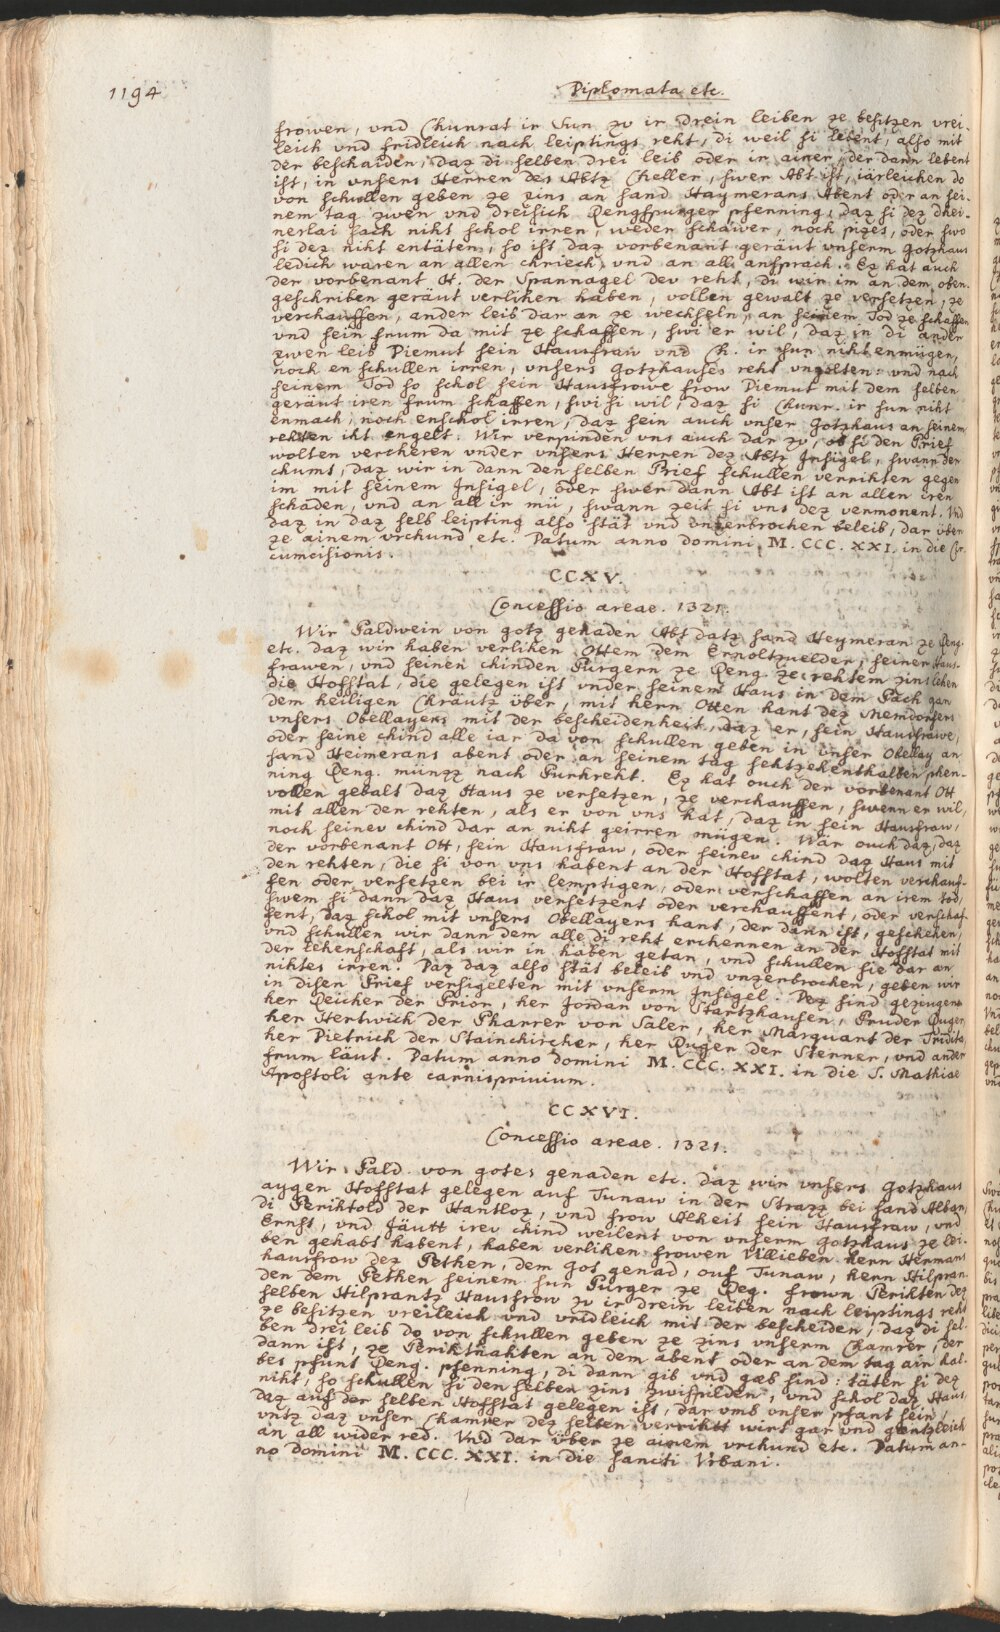 1194
Diplomata etc.
frowen, vnd Chunrat ir Sun zv ir drein leiben ze besitzen vrei-
leich vnd fridleich nach leiptings reht, di weil si lebent, also mit
der beschaiden, daz di selben drei leib oder ir ainer, der dann lebent
ist, in vnsers Herren des Abtz Cheller, swer Abt ist, iarleichen do
von schullen geben ze zins an sand Haymerans Abent oder an sei-
nem tag zwen vnd dreisich Rengspurger pfenning, daz si dez dhei-
nerlai sach niht schol irren, weder schawer, noch pizez, oder swo
si dez niht entäten, so ist daz vorbenant geräut vnserm Gotzhaus
ledich warden an allen chriech, vnd an all ansprach. Ez hat auch
der vorbenant H. der Spannagel dev reht, di wir im an dem oben-
geschriben geräut verlihen haben, vollen gewalt ze versetzen, ze
verchauffen, ander leib dar an ze wechseln, an seinem Tod ze schaffen
vnd sein frum da mit ze schaffen, swi er wil, daz in di ander
zwen leib Diemut sein Hausfraw vnd Ch. ir sun niht enmügen,
noch en schullen irren, vnsers Gotzhauses reht vngolten: vnd nach
seinem Tod so schol sein Hausfrowe frow Diemut mit dem selben
geräut iren frum schaffen, swi si wil, daz si Chunr. ir sun niht
enmach, noch enschol irren, daz sein auch vnser Gotzhaus an seinem
rehten iht engelt. Wir verpinden vns auch dar zv, ob si den Prief
wolten vercheren vnder vnsers Herren dez Abtz Insigel, swann der
chumt, daz wir in dann den selben Prief schullen verrihten gegen
im mit seinem Insigel, oder swer dann Abt ist an allen iren
schaden, vnd an all ir mü, swann zeit si vns dez vermonent. Vnd
daz in daz selb leipting also stät vnd vnzerbrochen beleib, dar über
ze ainem vrchund etc. Datum anno domini M. CCC. XXI. in die Cir-
cumcisionis.
CCXV.
Concessio areae. 1321.
Wir Paldwein von gotz genaden Abt datz sand Heymeran ze Reng.
etc. daz wir haben verlihen Ottem dem Ernoltzvelder, seiner Haus-
frawen, vnd seinen chinden Purgern ze Reng ze rehtem zins lehen
die Hofstat, die gelegen ist vnder seinem Haus in dem Pach gan
dem heiligen Chräutz über, mit hern Otten hant dez Memdorfers
vnsers Obellayers mit der bescheidenheit, daz er, sein Hausfrawe,
oder seine chind alle iar da von schullen geben in vnser Obellay an
sand Heimerans abent oder an seinem tag sehtzehenthalben phen-
ning Reng. münzz nach Purkreht. Ez hat ouch der vorbenant Ott
vollen gebalt daz Haus ze versetzen, ze verchauffen, swenn er wil,
mit allen den rehten, als er von vns hat, daz in sein Hausfraw,
noch seinev chind dar an niht geirren mügen. Wär ouch daz, daz
der vorbenant Ott, sein Hausfraw, oder seinev chind daz Haus mit
den rehten, die si von vns habent an der Hofstat, wolten verchauf-
fen oder versetzen bei ir lemptigen, oder verschaffen an irem tod,
swem si dann daz Haus versetzent oder verchauffent, oder verschaf-
fent, daz schol mit vnsers Obellayers hant, der dann ist, geschehen,
vnd schullen wir dann dem alle di reht erchennen an der Hofstat mit
der lehenschaft, als wir in haben getan, vnd schullen sie dar an
nihtes irren. Daz daz also stät beleib vnd vnzerbrochen, geben wir
in disen Prief versigelten mit vnserm Insigel. Dez sind gezeugen
her Reicher der Prior, her Jordan von Startzhausen, Pruder Ruger,
her Hertwich der Pharrer von Saler, her Marquart der Tridito,
her Dietrich der Stainchircher, her Ruger der Sterner, vnd ander
frum läut. Datum anno domini M. CCC. XXI. in die S. Mathiae
Apostoli ante carnisprivium.
CCXVI.
Concessio areae. 1321.
Wir Pald. von gotes genaden etc. daz wir vnsers Gotzhaus
aygen Hofstat gelegen auf Tunaw in der Strazz bei sand Alban,
di Perihtold der Hantloz, vnd frow Alheit sein Hausfraw, vnd
Ernst, vnd Jäutt irev chind weilent von vnserm Gotzhaus ze lei-
ben gehabt habent, haben verlihen frowen Villieben hern Hermans
hausfrow dez Pethen, dem Got genad, ouf Tunaw, hern Hilpran-
den dem Pethen seinem sun Purger ze Reg. frown Perihten dez
selben Hilprantz Hausfrow zv ir drein leiben nach leiptings reht
ze besitzen vreileich vnd vridleich mit der bescheiden, daz di sel-
ben drei leib do von schullen geben ze zins vnserm Chamrer, der
dann ist, ze Perihtnahten an dem abent oder an dem tag ain hal-
bes pfunt Reng. pfenning, di dann gib vnd gäb sind: täten si dez
niht, so schullen si den selben zins zwispilden, vnd schol daz Haus
daz auf der selben Hofstat gelegen ist, dar vmb vnser pfant sein,
vntz daz vnser Chamrer dez selben verriht wirt gar vnd gäntzleich
an all wider red. Vnd dar über ze ainem vrchund etc. Datum an-
no domini M. CCC. XXI. in die sancti Vrbani.